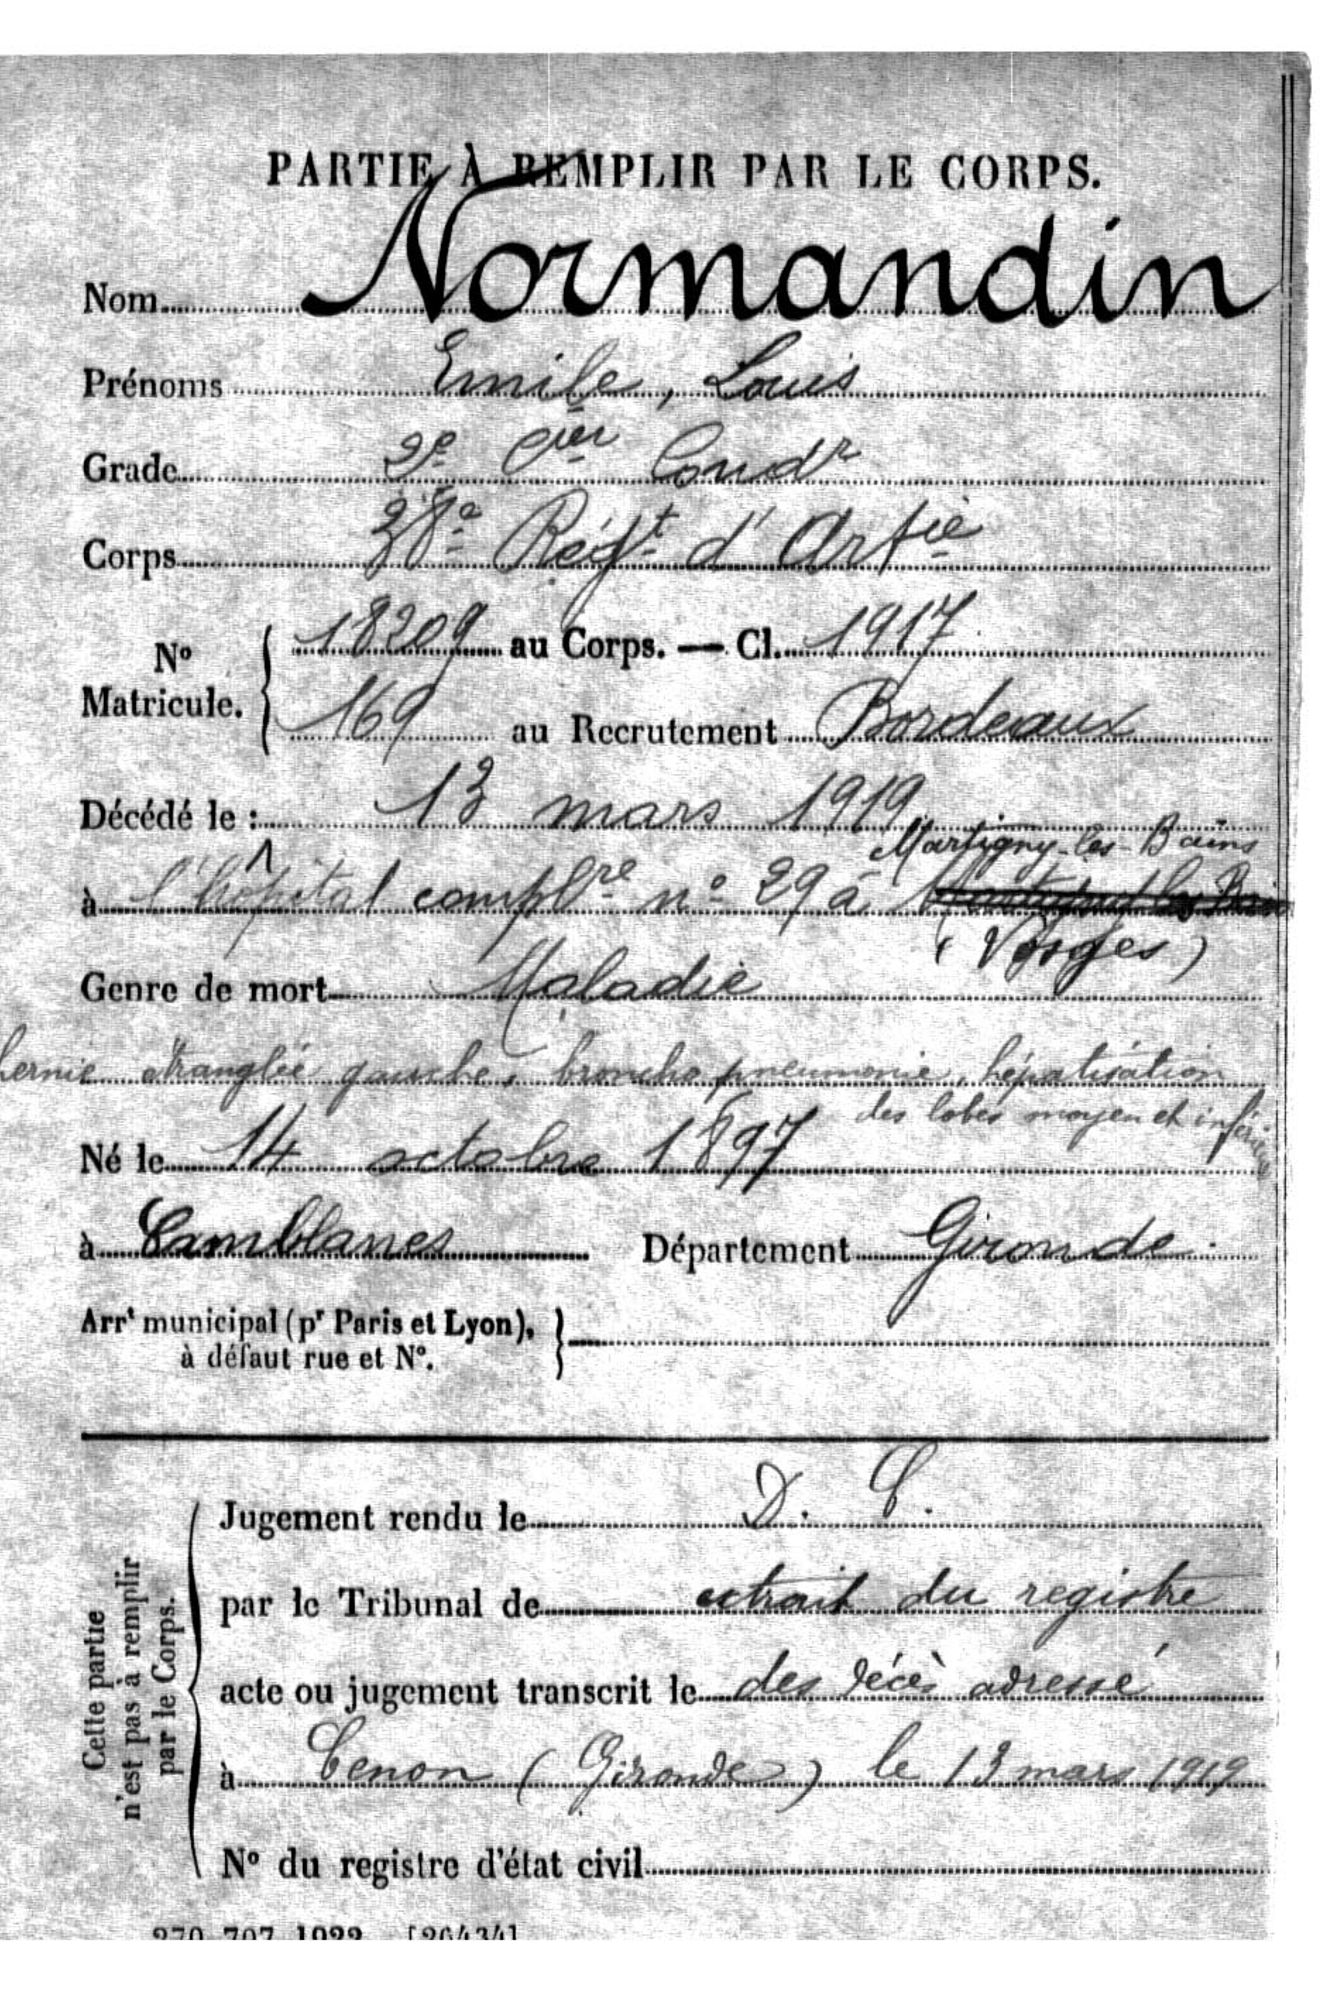 PARTIE À REMPLIR PAR LE CORPS.
Nom Normandin
Prénoms Emile, Louis
Grade 2e Cier Condr
Corps 38e Régt d'Artie
No Matricule. 18209 au Corps. — Cl. 1917
169 au Recrutement Bordeaux
Décédé le : 13 mars 1919
Martigny-les-Bains
à l'hôpital complre no 29 à
(Vosges)
Genre de mort Maladie
hernie étranglée gauche, broncho pneumonie, hépatisation
des lobes moyen et inférieur
Né le 14 octobre 1897
à Camblanes Département Gironde
Arrt municipal (pr Paris et Lyon),
à défaut rue et No.
Cette partie n'est pas à remplir par le Corps.
Jugement rendu le D. C.
par le Tribunal de extrait du registre
acte ou jugement transcrit le des décès adressé
à Cenon (Gironde) le 13 mars 1919
No du registre d'état civil
270-707-1922 [26434]